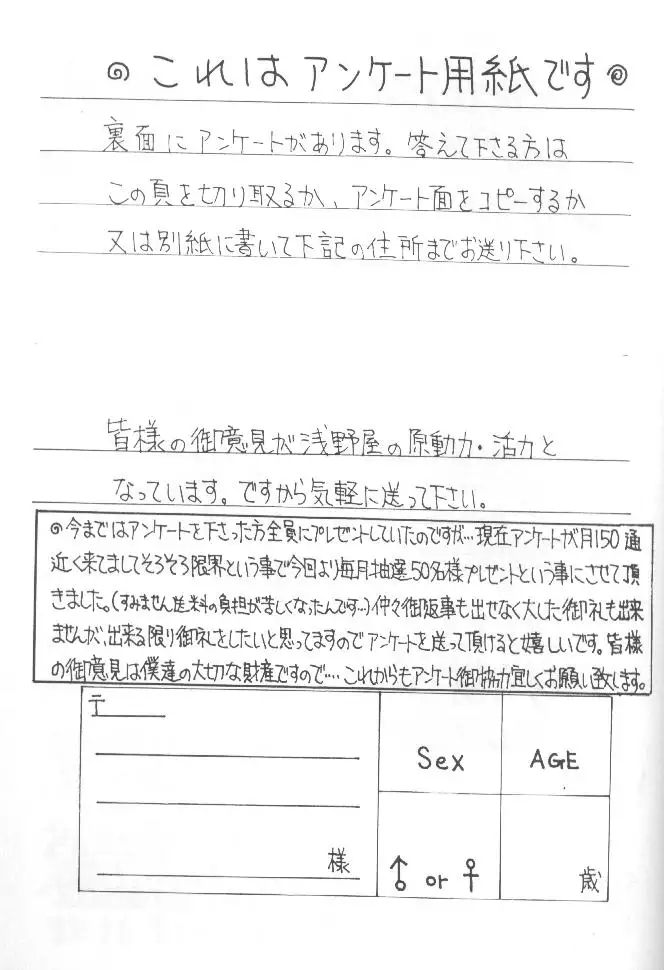 ◎これはアンケート用紙です◎
裏面にアンケートがあります。答えて下さる方は
この頁を切り取るか、アンケート面をコピーするか
又は別紙に書いて下記の住所までお送り下さい。
皆様の御意見が浅野屋の原動力・活力と
なっています。ですから気軽に送って下さい。
◎今まではアンケートを下さった方全員にプレゼントしていたのですが…現在アンケートが月150通
近く来てましてそろそろ限界という事で今回より毎月抽選50名様プレゼントという事にさせて頂
きました。(すみません送料の負担が苦しくなったんです…)仲々御返事も出せなく大した御礼も出来
ませんが、出来る限り御礼をしたいと思ってますのでアンケートを送って頂けると嬉しいです。皆様
の御意見は僕達の大切な財産ですので…これからもアンケート御協力宜しくお願い致します。
〒
様
Sex
AGE
♂ or ♀
歳